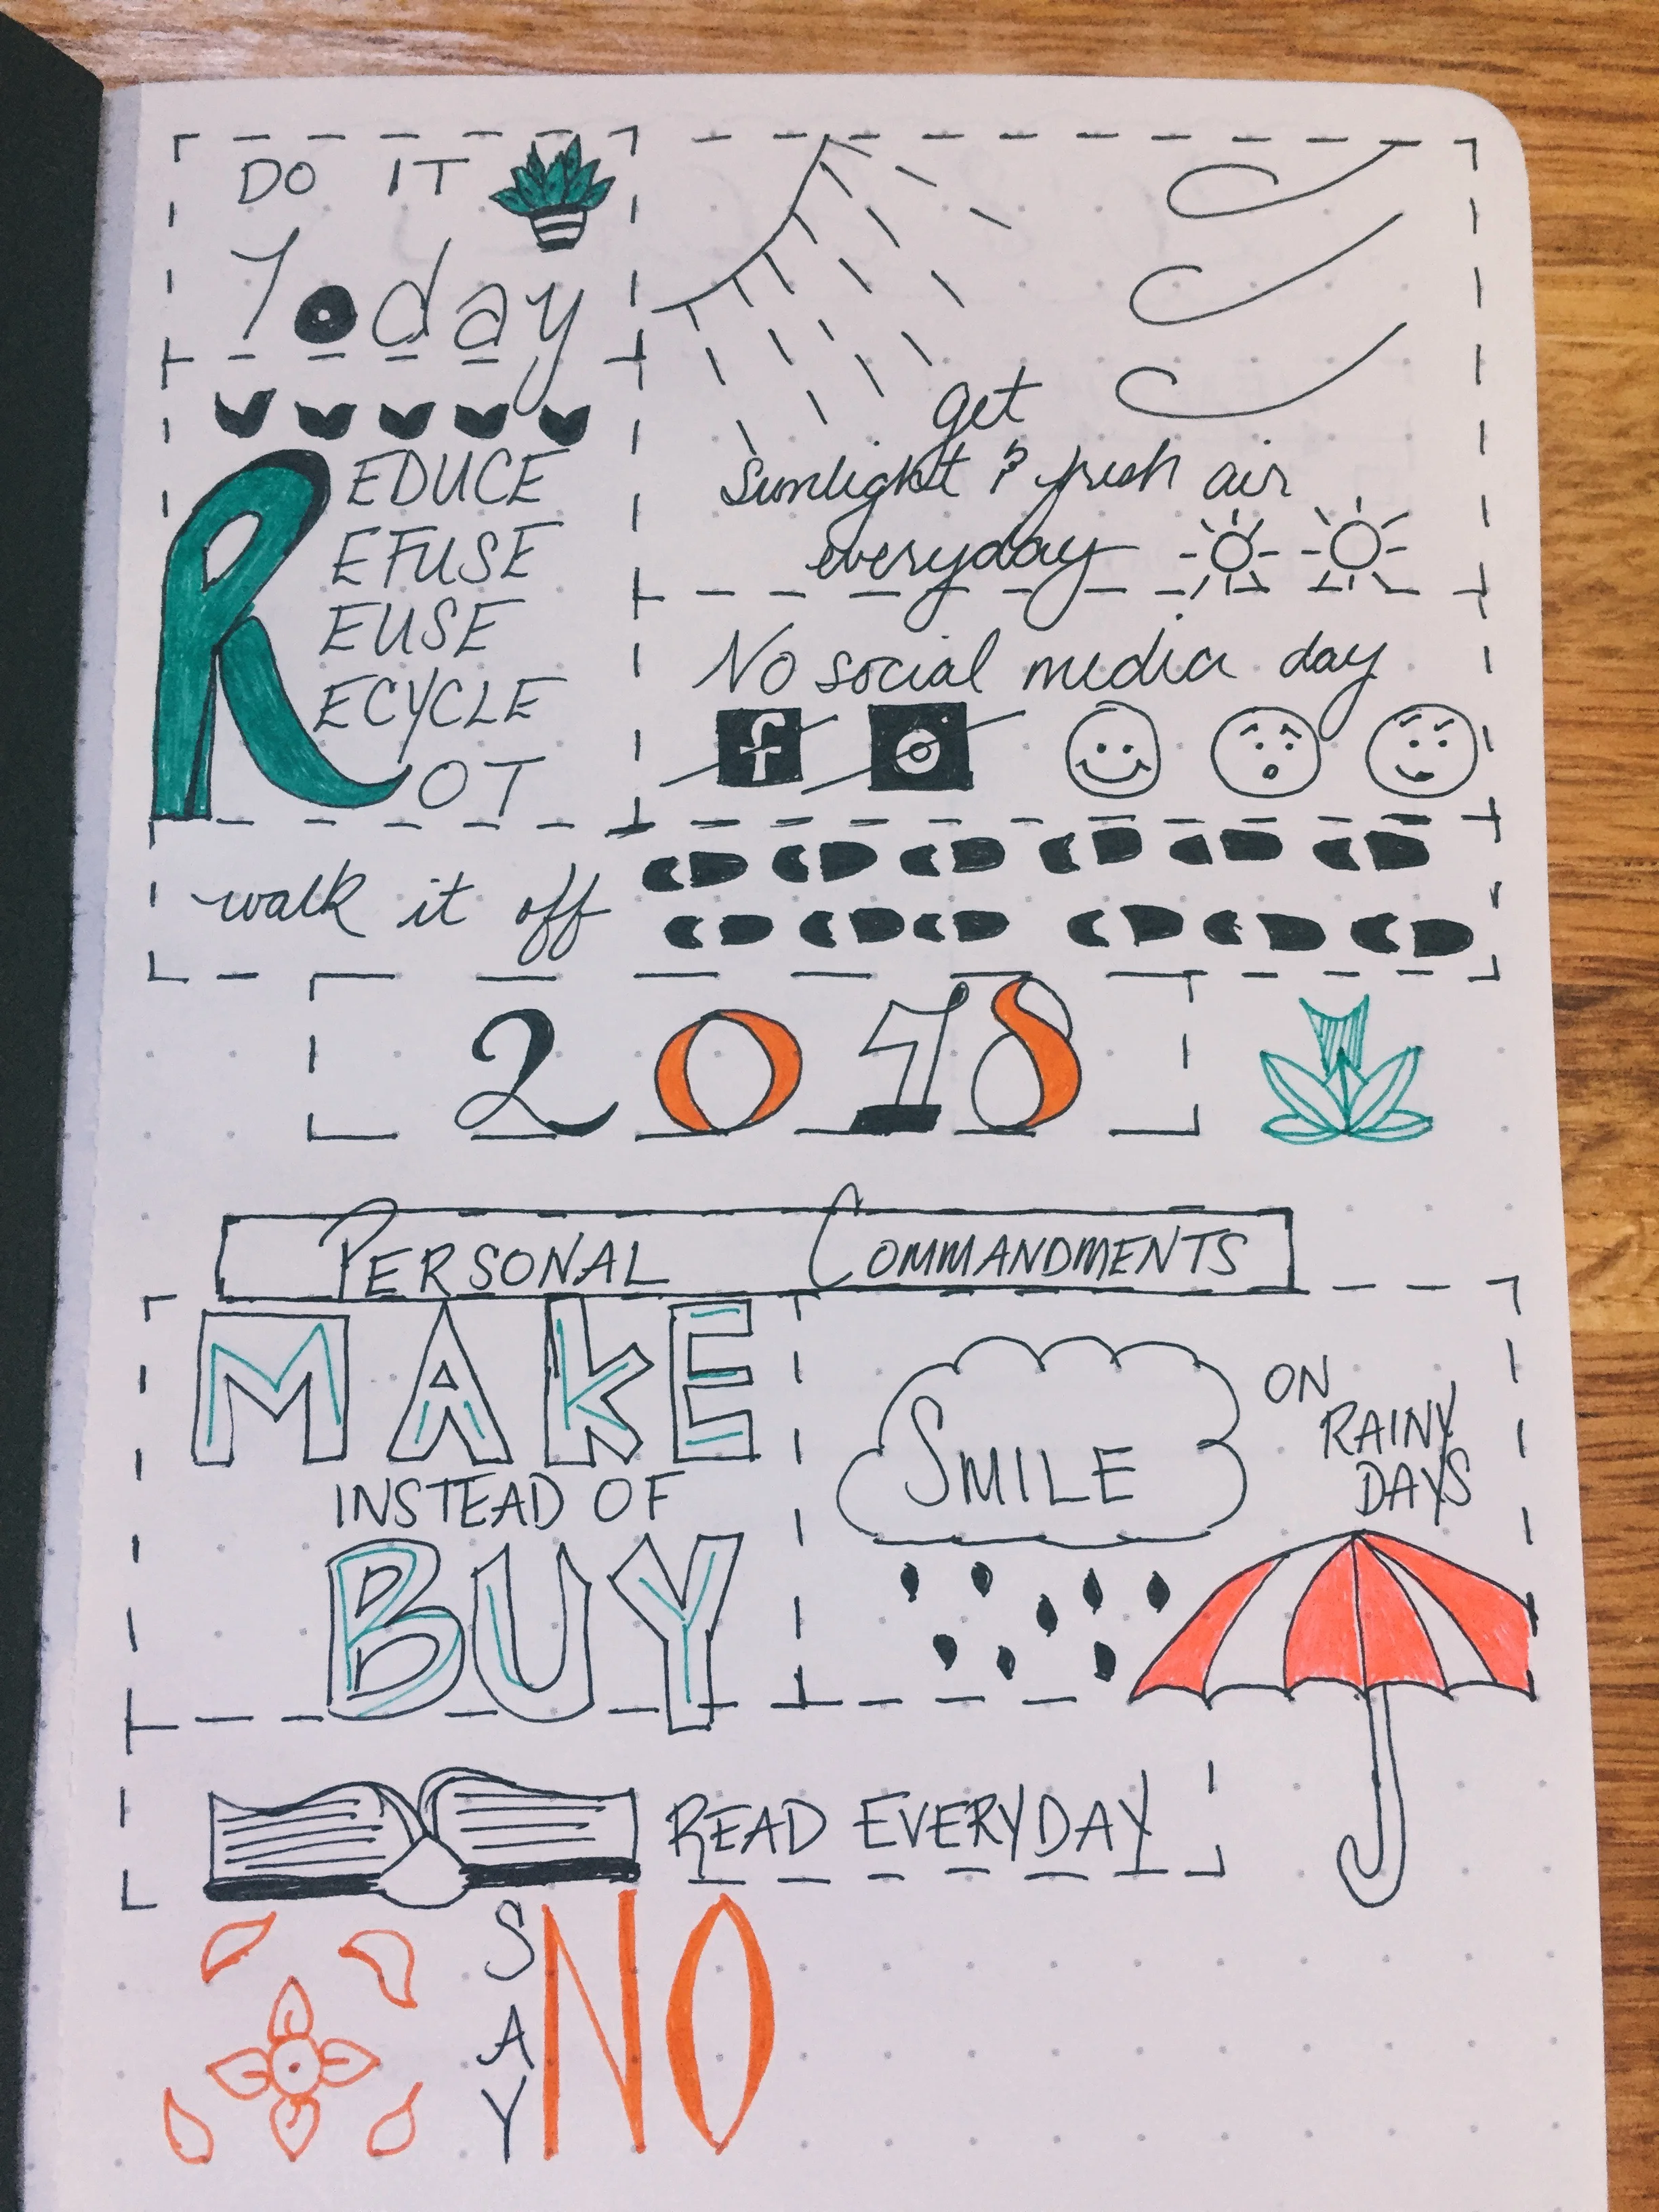 DO IT
Today
REDUCE
EFUSE
EUSE
ECYCLE
OT
get
Sunlight & fresh air
everyday
No social media day
f
walk it off
2018
PERSONAL COMMANDMENTS
MAKE
INSTEAD OF
BUY
SMILE
ON
RAINY
DAYS
READ EVERYDAY
SAY
NO